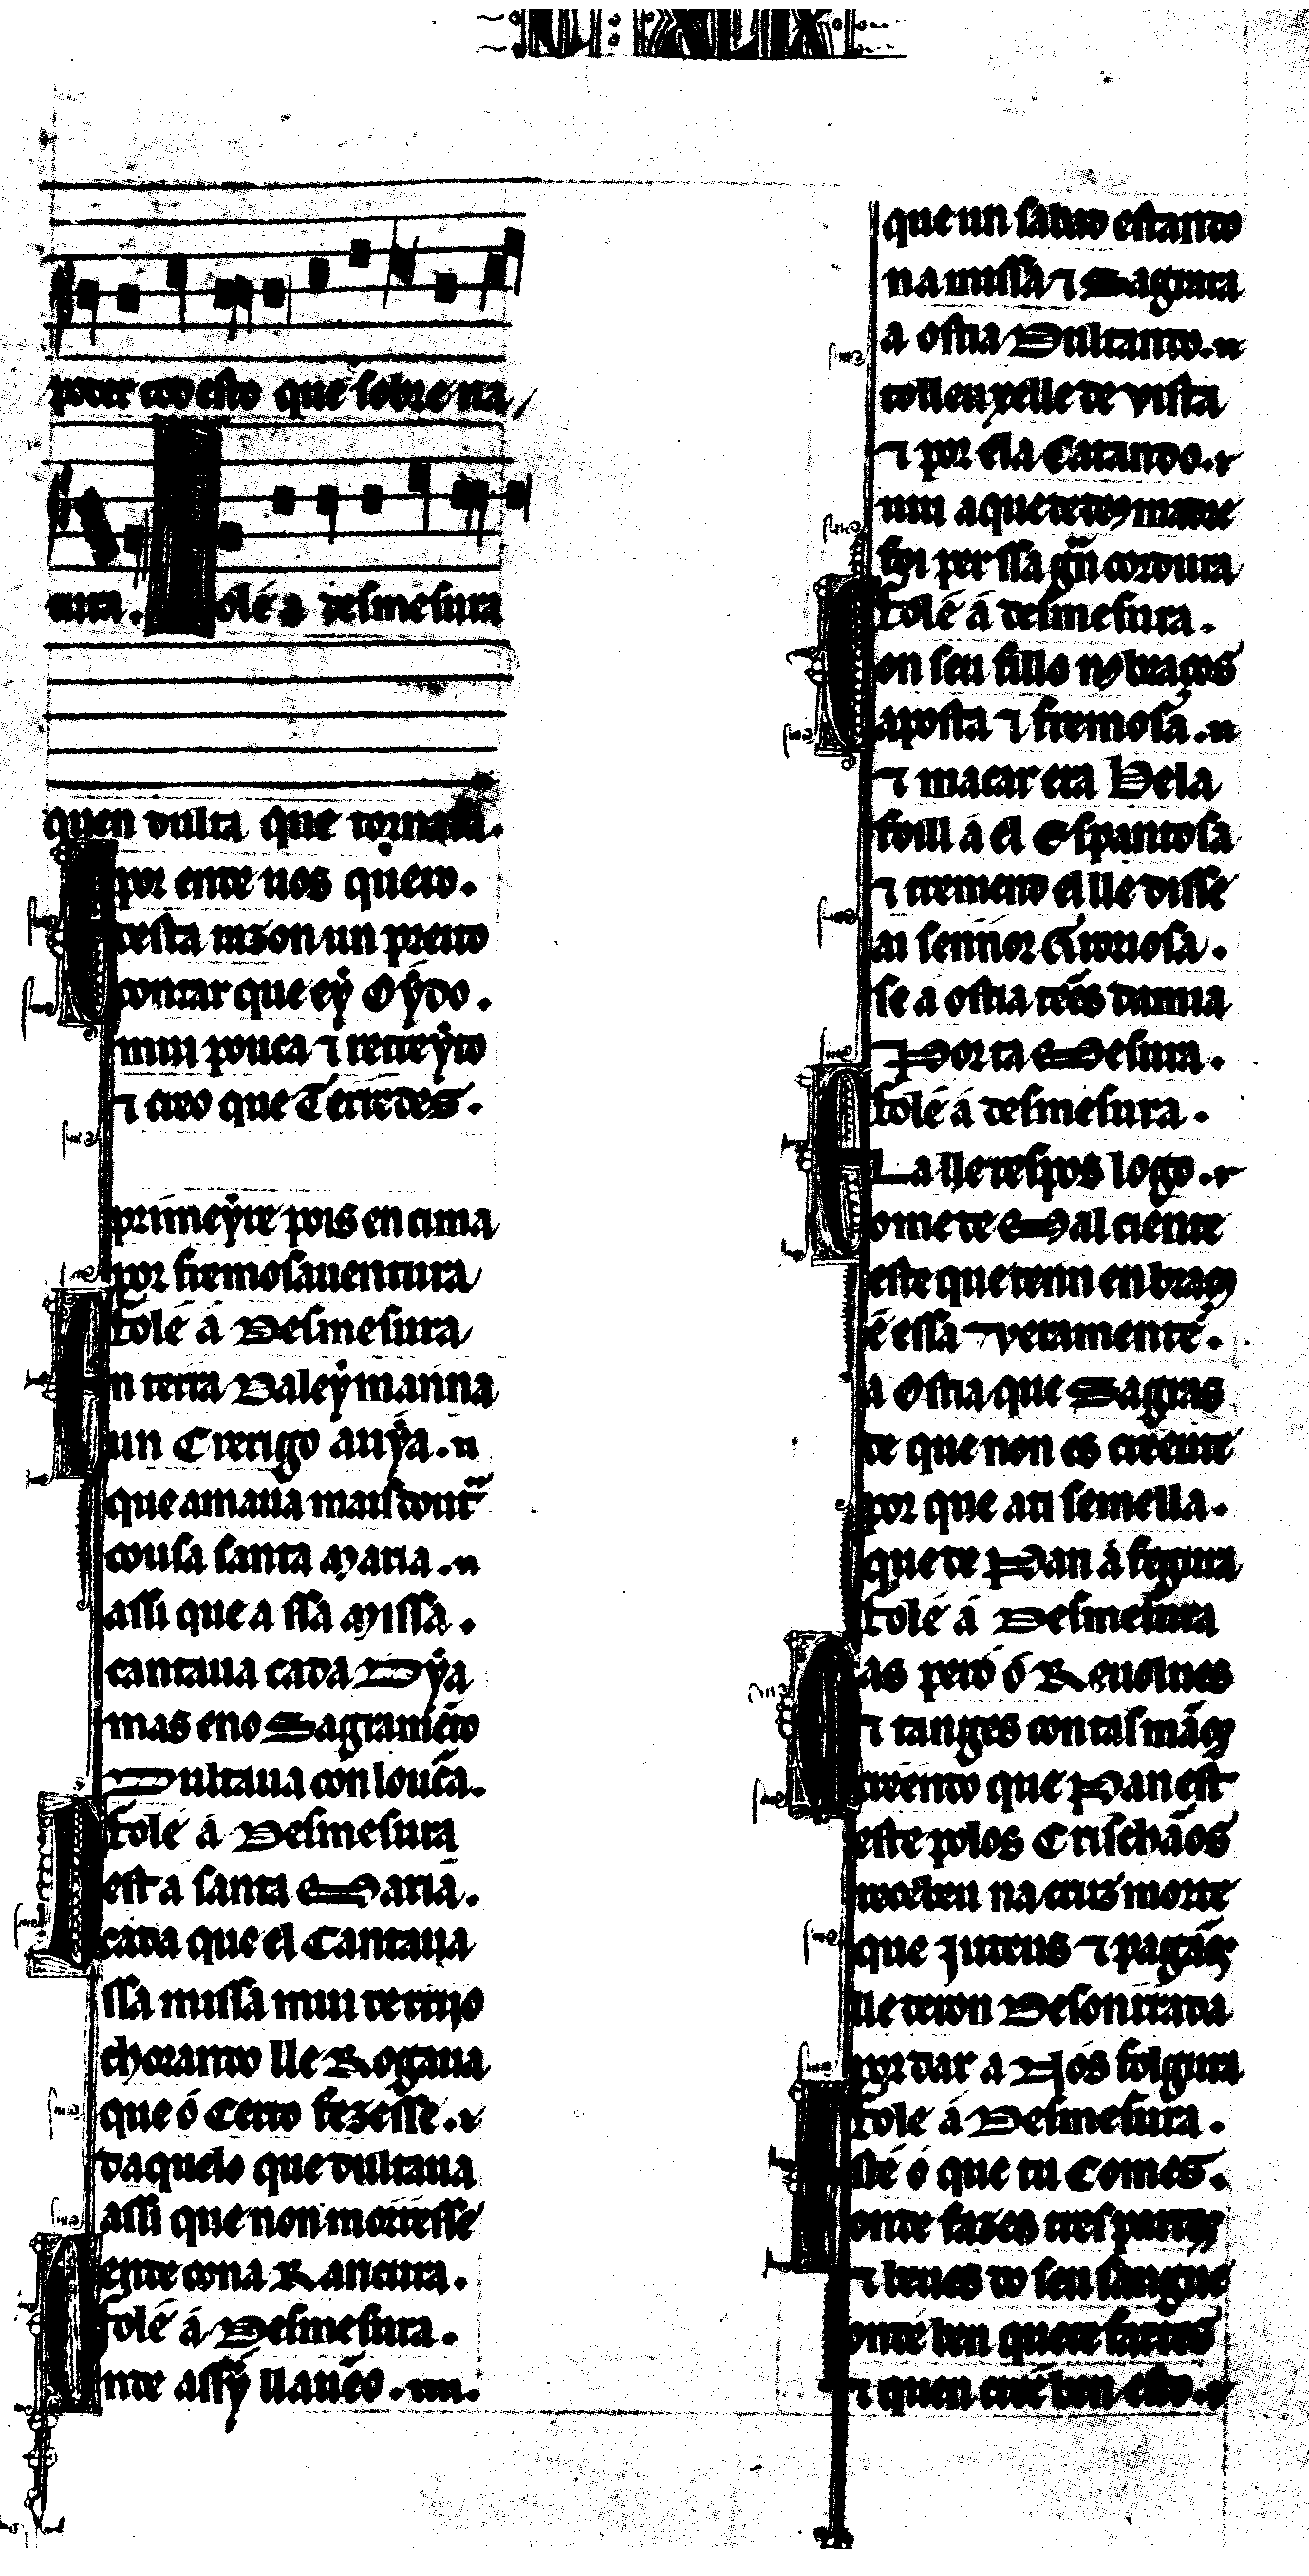 poder tod esto que sobre na
tura. Folé a desmesura
quen dulta que tornada.
por ende uos quero.
desta razon un preito
contar que eý Oýdo.
mui pouca ⁊ retreýto
⁊ creo que Terredes.
primeýre pois en cima
por fremosa uentura
folé á Desmesura
En terra Daleýmanna
un Crerigo auýa.
que amaua mais doutᷓ
cousa santa Maria.
assi que a ssa Missa.
cantaua cada Dýa
mas eno Sagramēto
Dultaua con loucᷓa.
folé á Desmesura
est a santa Maria.
cada que el Cantaua
ssa missa mui de rrijo
chorando lle Rogaua
que ó Certo fezesse.
daquelo que dultaua
assi que non morresse
ente cona Rancura.
folé á Desmesura.
nte assý llauēo.
que un sabado estando
na missa ⁊ Sagrara
a ostia Dultando.
tolleuxelle de vista
⁊ por ela Catando.
uiu aque de deꝯ madre
foi per ssa gᷓn cordura
folé á desmesura.
Con seu fillo nꝯ braços
aposta ⁊ fremosa.
⁊ macar era Bela
foill a el Espantosa
⁊ tremendo el lle disse
ai sennor Groriosa.
se a ostia tēes dumia
Por ta Mesura.
folé á desmesura.
Ela lle respos logo.
ome de Mal ciente
este que tenn en braçꝯ
é essa ⁊ veramente.
a Ostia que Sagras
de que non es creente
por que ati semella.
que de Pan á fegura
folé á Desmesura
Mas pero ó Reuolues
⁊ tanges con tas māꝯ
creendo que Pan est
este polos Crischāos
recebeu na cruz morte
que Judeus ⁊ pagāꝯ
lle deron Desonrrada
por dar a Nos folgura
folé á Desmesura.
Esté ó que tu Comes.
onde fazes tres partes
⁊ beues do seu sangue
onde ben quere fartes
⁊ quen creé ben esto.